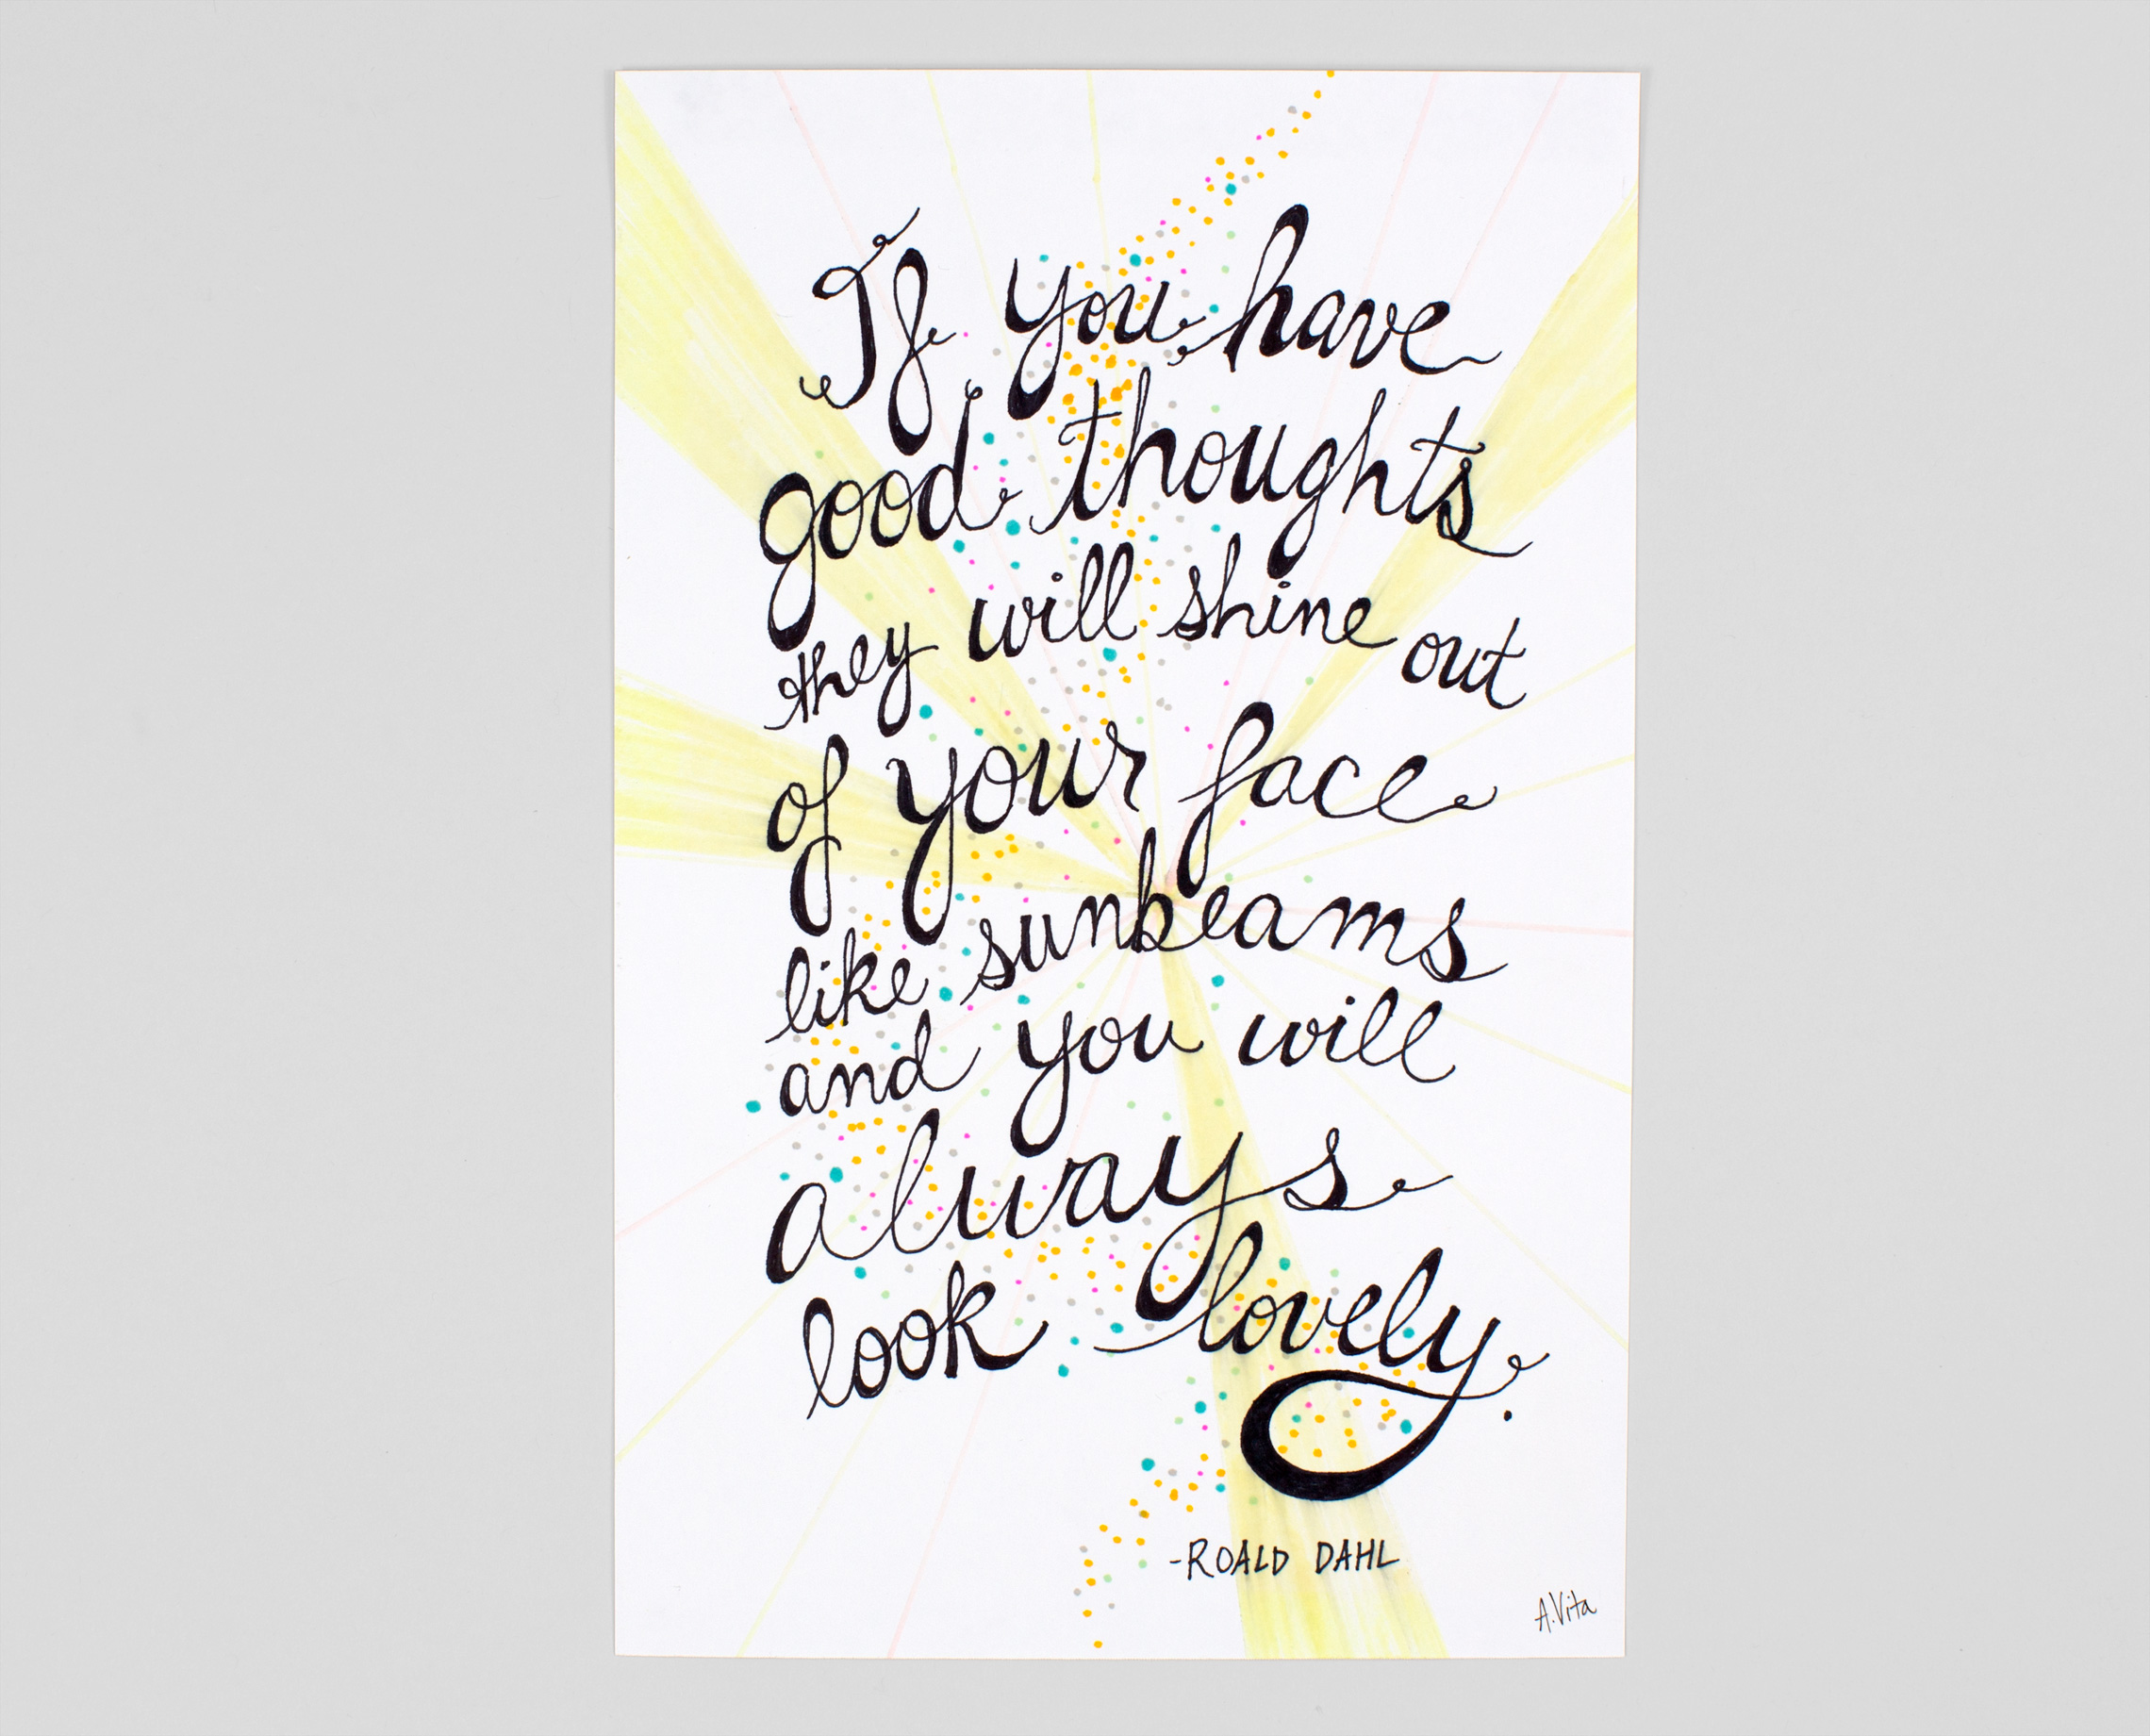 If you have
good thoughts
they will shine out
of your face
like sunbeams
and you will
always
look lovely.
-ROALD DAHL
A.Vita